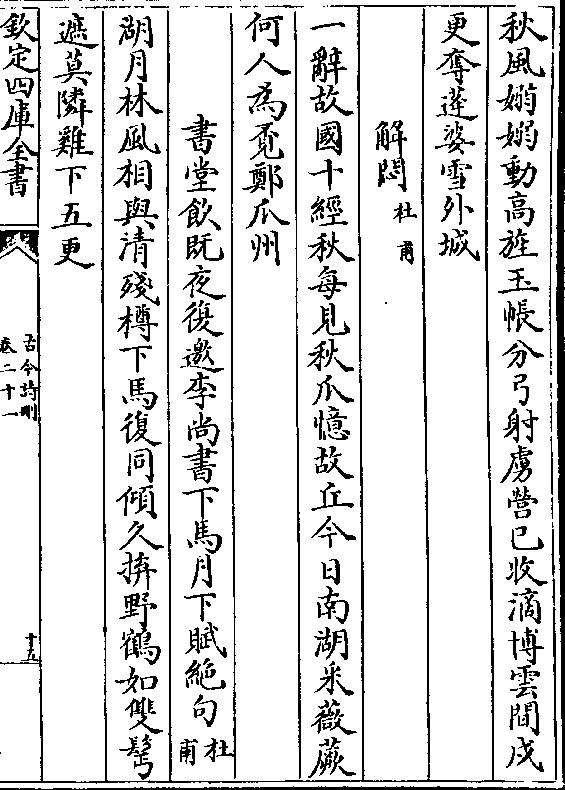 秋風嫋嫋動高旌玉帳分弓射虜營已收滴博雲間戍
更奪蓬婆雪外城
解悶杜甫
一辭故國十經秋每見秋瓜憶故丘今日南湖采薇蕨
何人為覓鄭瓜州
書堂飲既夜復邀李尚書下馬月下賦絕句杜甫
湖月林風相與清殘樽下馬復同傾久拚野鶴如雙鬢
遮莫隣雞下五更
欽定四庫全書
古今詩刪
卷二十一
十五